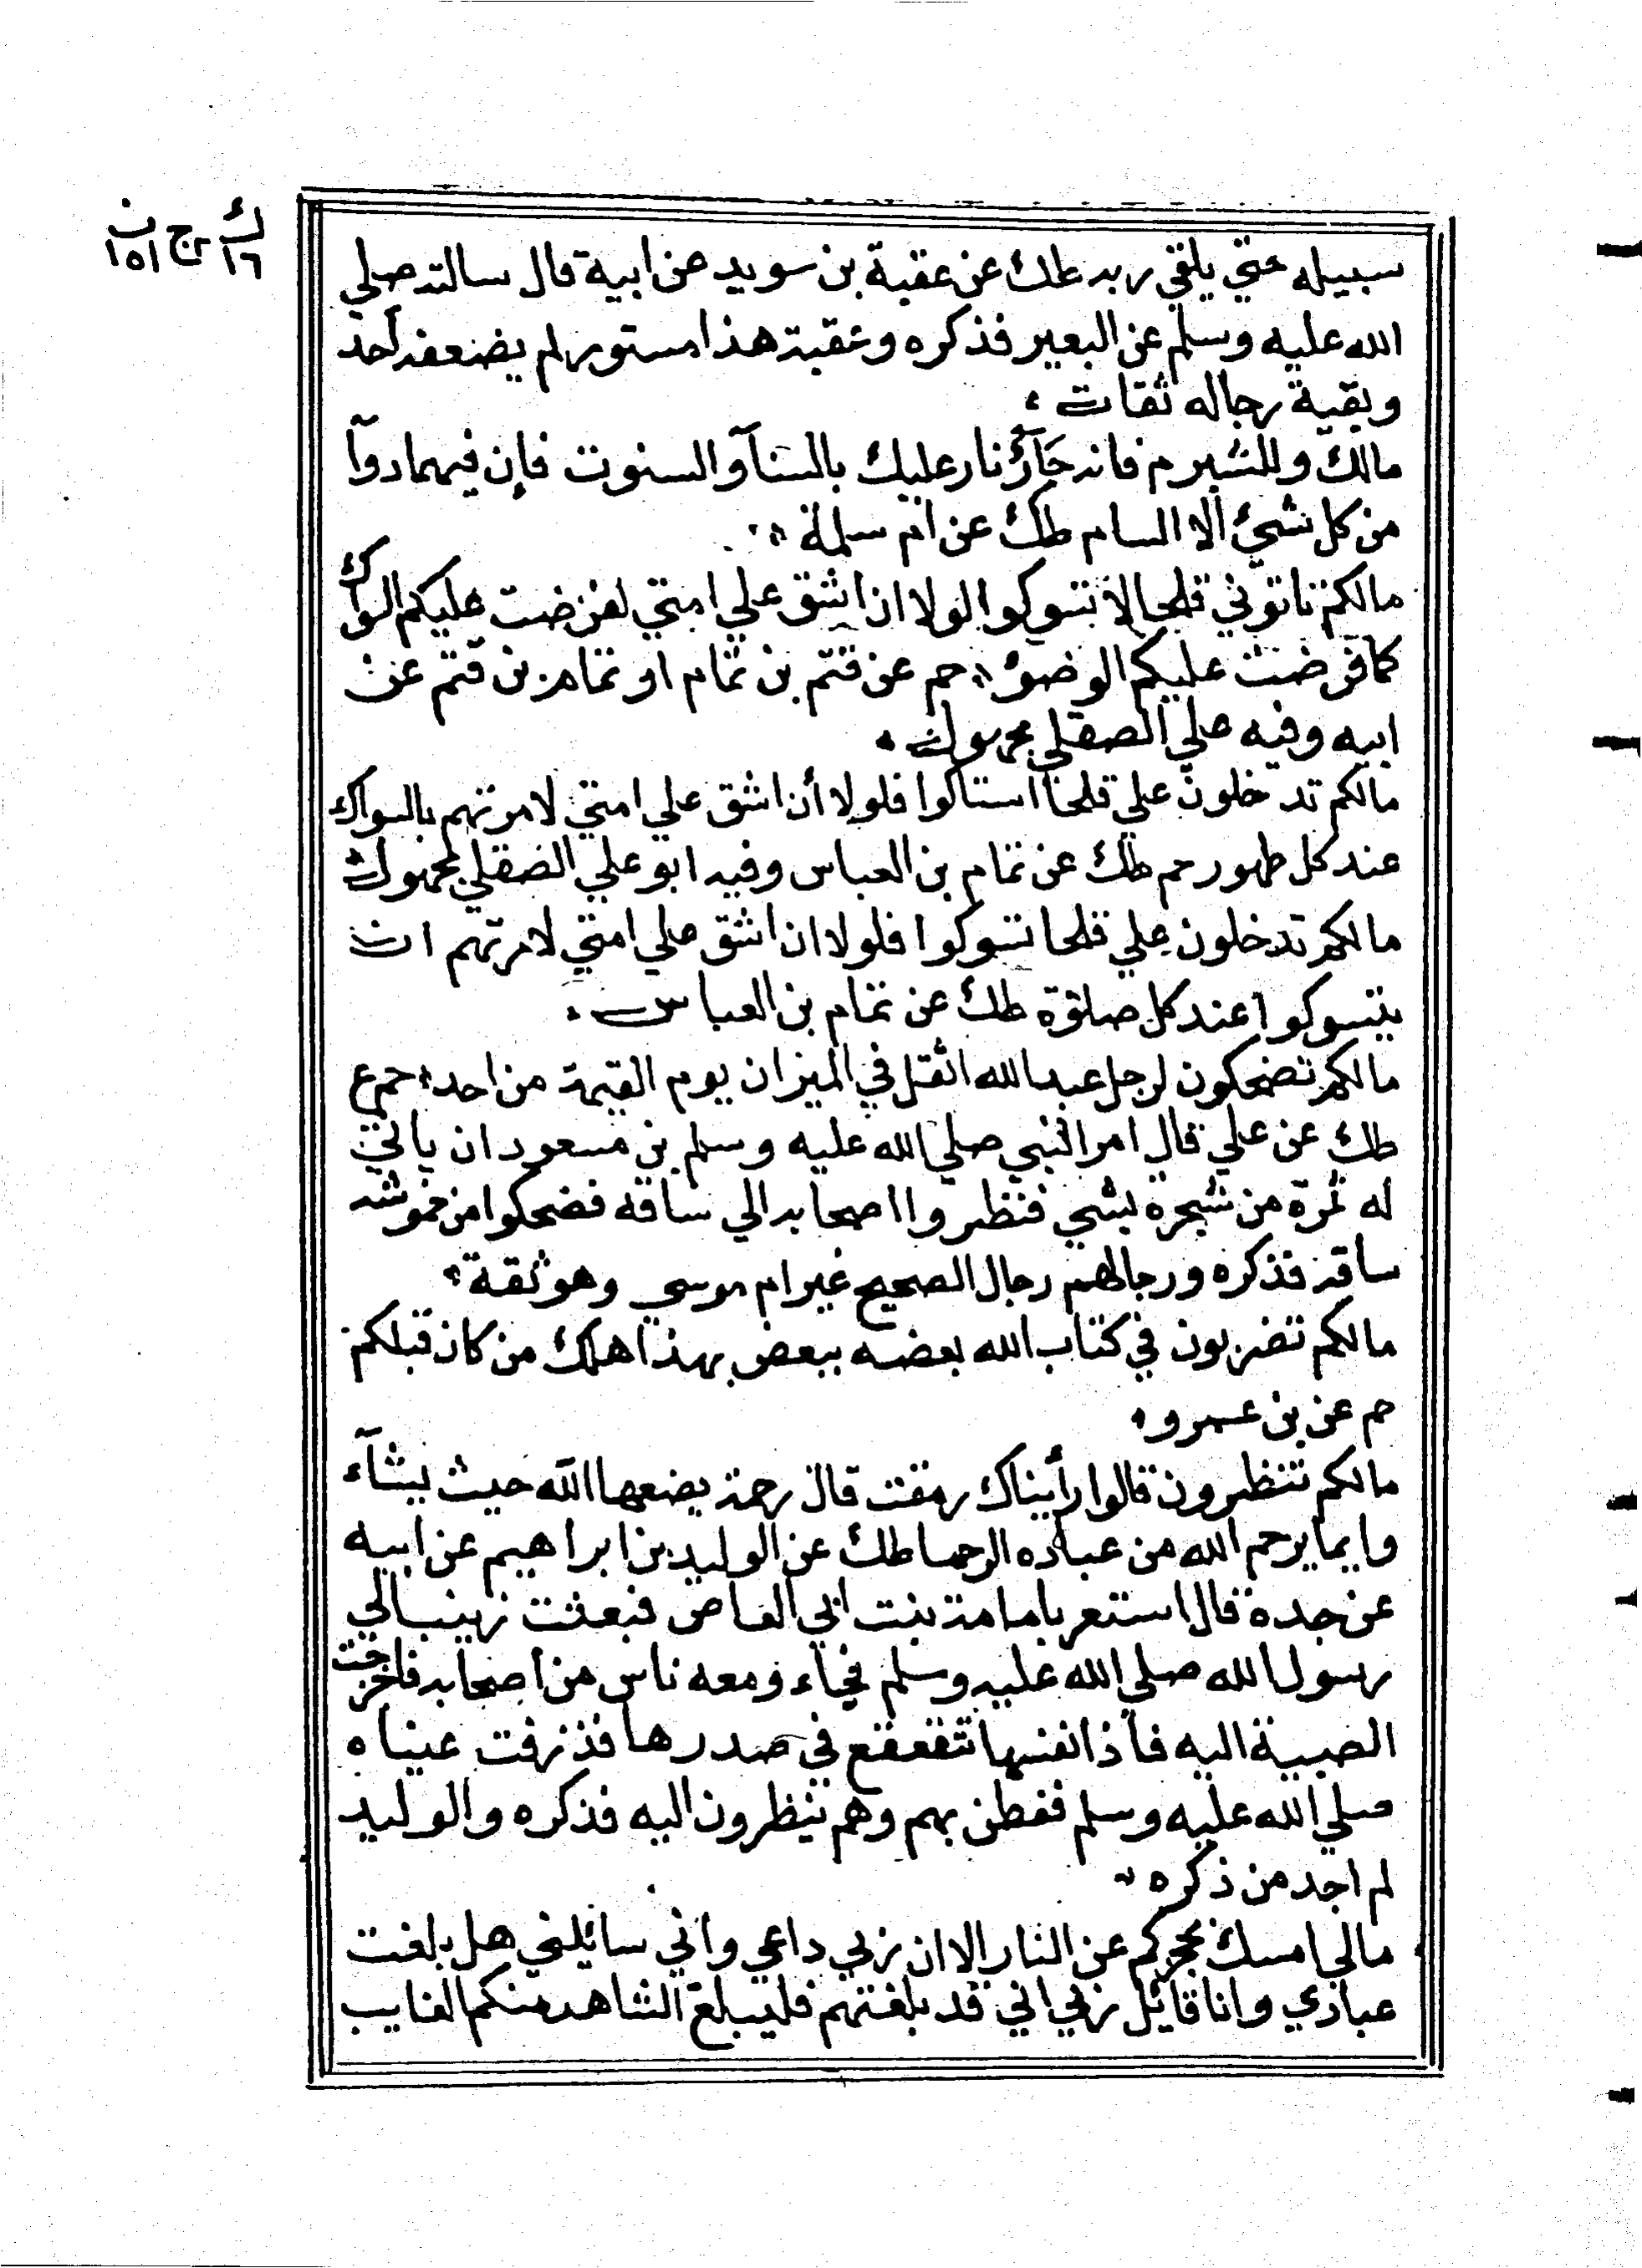 سبيله حتي يلقي ربه طك عن عقبة بن سويد عن ابية قال سالته صلي
الله عليه وسلم عن البعير فذكره وعقبة هذا مستور لم يضعفه احد
وبقية رجاله ثقات
مالك وللشبرم فانه حَارٌّ نار عليك بالسنآ والسنوت فإن فيهما دوآ
من كل شيئ الا السام طك عن ام سلمة
مالكم تاتوني قلحا لا تسوكوا لولا ان اشق علي امتي لفرضت عليكم السواك
كما فرضت عليكم الوضوء حم عن قثم بن تمام او تمام بن قثم عن
ابيه وفيه علي الصقلي مجهول
مالكم تدخلون علي قلحا استاكوا فلولا أن اشق علي امتي لامرتهم بالسواك
عند كل طهور حم طك عن تمام بن العباس وفيه ابو علي الصقلي مجهول
مالكم تدخلون علي قلحا تسوكوا فلولا ان اشق علي امتي لامرتهم ان
يتسوكوا عند كل صلوة طك عن تمام بن العباس
مالكم تضحكون لرجل عبد الله اثقل في الميزان يوم القيمة من احد حم ع
طك عن علي قال امر النبي صلي الله عليه وسلم بن مسعود ان ياتي
له ثمرة من شجره بشي فنظروا اصحابه الي ساقه فضحكوا من حموشه
ساقه فذكره ورجالهم رجال الصحيح غير ام موسي وهو ثقة
مالكم تضربون في كتاب الله بعضه ببعض بهذا هلك من كان قبلكم
حم عن بن عمرو
مالكم تنظرون قالوا رأيناك رققت قال رحمة يضعها الله حيث يشآء
وايما يرحم الله من عباده الرحما طك عن الوليد بن ابراهيم عن ابيه
عن جده قال استعر بامامة بنت ابي العاص فبعثت زينب الي
رسول الله صلي الله عليه وسلم فجاء ومعه ناس من اصحابه فاخرجت
الصبية اليه فاذا نفسها تقعقع في صدرها فذرفت عيناه
صلي الله عليه وسلم ففطن بهم وهم ينظرون اليه فذكره والوليد
لم اجد من ذكره
مالي امسك بحجزكم عن النار الا ان ربي داعي واني سائلني هل بلغت
عبادي وانا قائل ربي اني قد بلغتهم فليبلغ الشاهد منكم الغايب